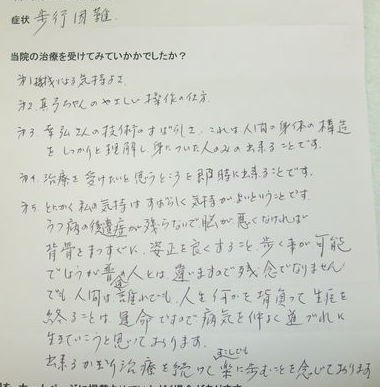 症状 歩行困難.
当院の治療を受けてみていかかでしたか?
オ1 機械による気持よさ
オ2. 真弓ちゃんのやさしい操作の仕方.
オ3 幸弘さんの技術のすばらしさ、これは人間の身体の構造
をしっかりと理解し身についた人のみの出来ることです.
オ4. 治療を受けたいと思うところを即時に出来ることです.
オ5. とにかく私の気持はすばらしく気持がよいということです.
うつ病の後遺症が残らないで脳が悪くなければ
背骨をまっすぐに、姿正を良くすること、歩く事が可能
でしょうが普通の人とは違いますので残念でなりません
でも人間は誰れでも、人を何かを背負って生涯を
終ることは運命ですので病気を仲よく道づれに
生きていこうと思っております.
出来るかぎり治療を続けて楽に歩むことを念じております
正しくも